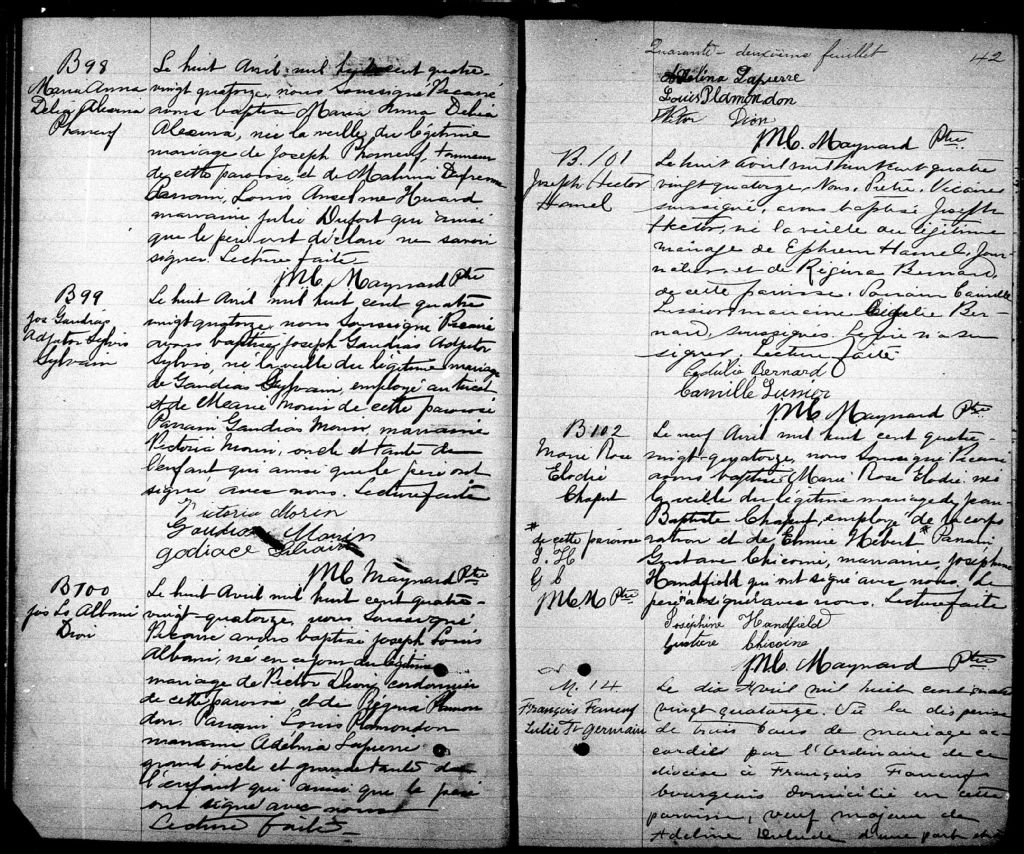 B 98
Maria Anna
Delia Alexina
Phaneuf
Le huit Avril mil huit cent quatre-
vingt quatorze, nous soussigné Vicaire
avons baptisé Maria Anna Delia
Alexina, née la veille du légitime
mariage de Joseph Phaneuf, tanneur
de cette paroisse, et de Malvina Dufresne
Parrain, Louis Anselme Huard
marraine Julie Dufort qui ainsi
que le père ont déclaré ne savoir
signer. Lecture faite
JMC Maynard Ptre
B 99
Jos Gaudias
Adjutor Sylvio
Sylvain
Le huit Avril mil huit cent quatre
vingt quatorze, nous soussigné Vicaire
avons baptisé Joseph Gaudias Adjutor
Sylvio, né la veille du légitime mariage
de Gaudias Sylvain, employé au
et de Marie Morin de cette paroisse
Parrain Gaudias Morin, marraine
Victoria Morin, oncle et tante de
l'enfant, qui ainsi que le père ont
signé avec nous. Lecture faite
Victoria Morin
Morin
godiace
JMC Maynard Ptre
B 100
Jos Ls Albani
Dion
Le huit Avril mil huit cent quatre-
vingt-quatorze, nous soussigné
Vicaire avons baptisé Joseph Louis
Albani, né en ce jour du légitime
mariage de Victor Dion, cordonnier
de cette paroisse, et de Régina Plamon
don. Parrain Louis Plamondon
marraine Adélina Lapierre
grand oncle et grande tante de
l'enfant qui ainsi que le père
ont signé avec nous
Lecture faite
Quarante-deuxième feuillet
42
Adelina Lapierre
Louis Plamondon
Victor Dion
JMC. Maynard Ptre.
B. 101
Joseph Hector
Hamel
Le huit Avril mil huit cent quatre
vingt quatorze, Nous, Prêtre, Vicaire
soussigné, avons baptisé Joseph
Hector, né la veille du légitime
mariage de Ephrem Hamel, Jour-
nalier, et de Régina Bernard,
de cette paroisse. Parrain Camille
Lussier marraine Cédulie Ber-
nard, soussignés. Le père n'a su
signer. Lecture faite
Cédulie Bernard
Camille Lussier
JMC Maynard Ptre
B 102
Marie Rose
Elodie
Chaput
Le neuf Avril mil huit cent quatre-
vingt-quatorze, nous soussigné Vicaire
avons baptisé Marie Rose Elodie, née
la veille du légitime mariage de Jean
Baptiste Chaput, employé de la corpo
ration et de Elmire Hébert * Parrain
Gustave Chicoine, marraine, Joséphine
Handfield qui ont signé avec nous. Le
père a signé avec nous. Lecture faite
* de cette paroisse
J. H
G C
JMCM Ptre
Joséphine Handfield
Gustave Chicoine
JMC. Maynard Ptre
M. 14
François Faneuf
Julie St Germain
Le dix Avril mil huit cent quatre
vingt quatorze. Vu la dispense
de trois bans de mariage ac-
cordée par l'Ordinaire de ce
diocèse à François Faneuf
bourgeois domicilié en cette
paroisse, veuf majeur de
Adeline d'une part et à